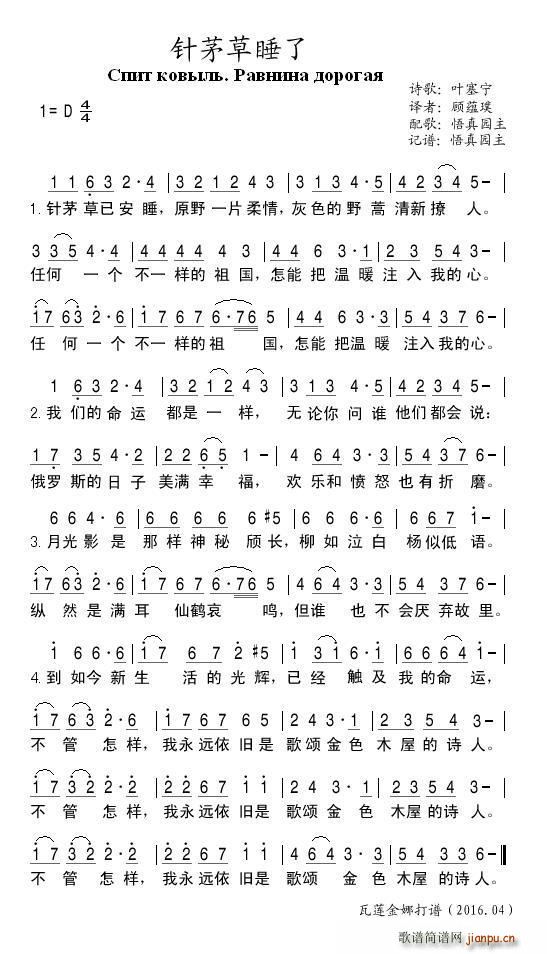 针茅草睡了
Спит ковыль. Равнина дорогая
1= D 4/4
诗歌：叶塞宁
译者：顾蕴璞
配歌：悟真园主
记谱：悟真园主
1 1 6 3 2·4 | 3 2 1 2 4 3 | 3 1 3 4·5 | 4 2 3 4 5- |
1.针茅草已安睡，原野一片柔情，灰色的野蒿清新撩人。
3 3 5 4·4 | 4 4 4 5 4 2 | 4 4 6 3·1 | 2 3 5 4 3- |
任何一个不一样的祖国，怎能把温暖注入我的心。
1 7 6 3 2·6 | 1 7 6 7 6·7 6 5 | 4 4 6 3·4 | 5 4 3 4 2- |
任何一个不一样的祖国，怎能把温暖注入我的心。
1 6 3 2·4 | 3 2 1 2 4 3 | 3 1 3 4·5 | 4 2 3 4 5- |
2.我们的命运都是一样，无论你问谁他们都会说：
1 7 3·5 | 2 2 6 5 1- | 4 6 4 3·3 | 5 4 3 7 6- |
俄罗斯的日子美满幸福，欢乐和愤怒也有折磨。
6 6 4·6 | 6 6 6 6 6 #5 | 6 6 6 4·6 | 6 6 7 1- |
3.月光影是那样神秘颀长，柳如泣白杨似低语。
1 7 6 3 2·6 | 1 7 6 7 6·7 6 5 | 4 6 4 3·3 | 5 4 3 4 2- |
纵然是满耳仙鹤哀鸣，但谁也不会厌弃故里。
1 6 6·6 | 1 7 6 7 2·#5 | 1 3 1 6·1 | 1 3 4 3 3- |
4.到如今新生活的光辉，已经触及我的命运，
1 7 6 3 2·6 | 1 7 6 7 6 5 | 2 4 3·1 | 2 3 5 4 3- |
不管怎样，我永远依旧是歌颂金色木屋的诗人。
1 7 3 2 2·2 | 6 6 7 1 1 | 4 4 3·1 | 2 3 5 4 3- |
不管怎样，我永远依旧是歌颂金色木屋的诗人。
1 7 3 2 2·2 | 6 6 7 1 1 | 4 6 4 3·3 | 5 4 3 4 2- ‖
不管怎样，我永远依旧是歌颂金色木屋的诗人。
瓦莲金娜打谱（2016.04）
歌谱简谱网 jianpu.cn